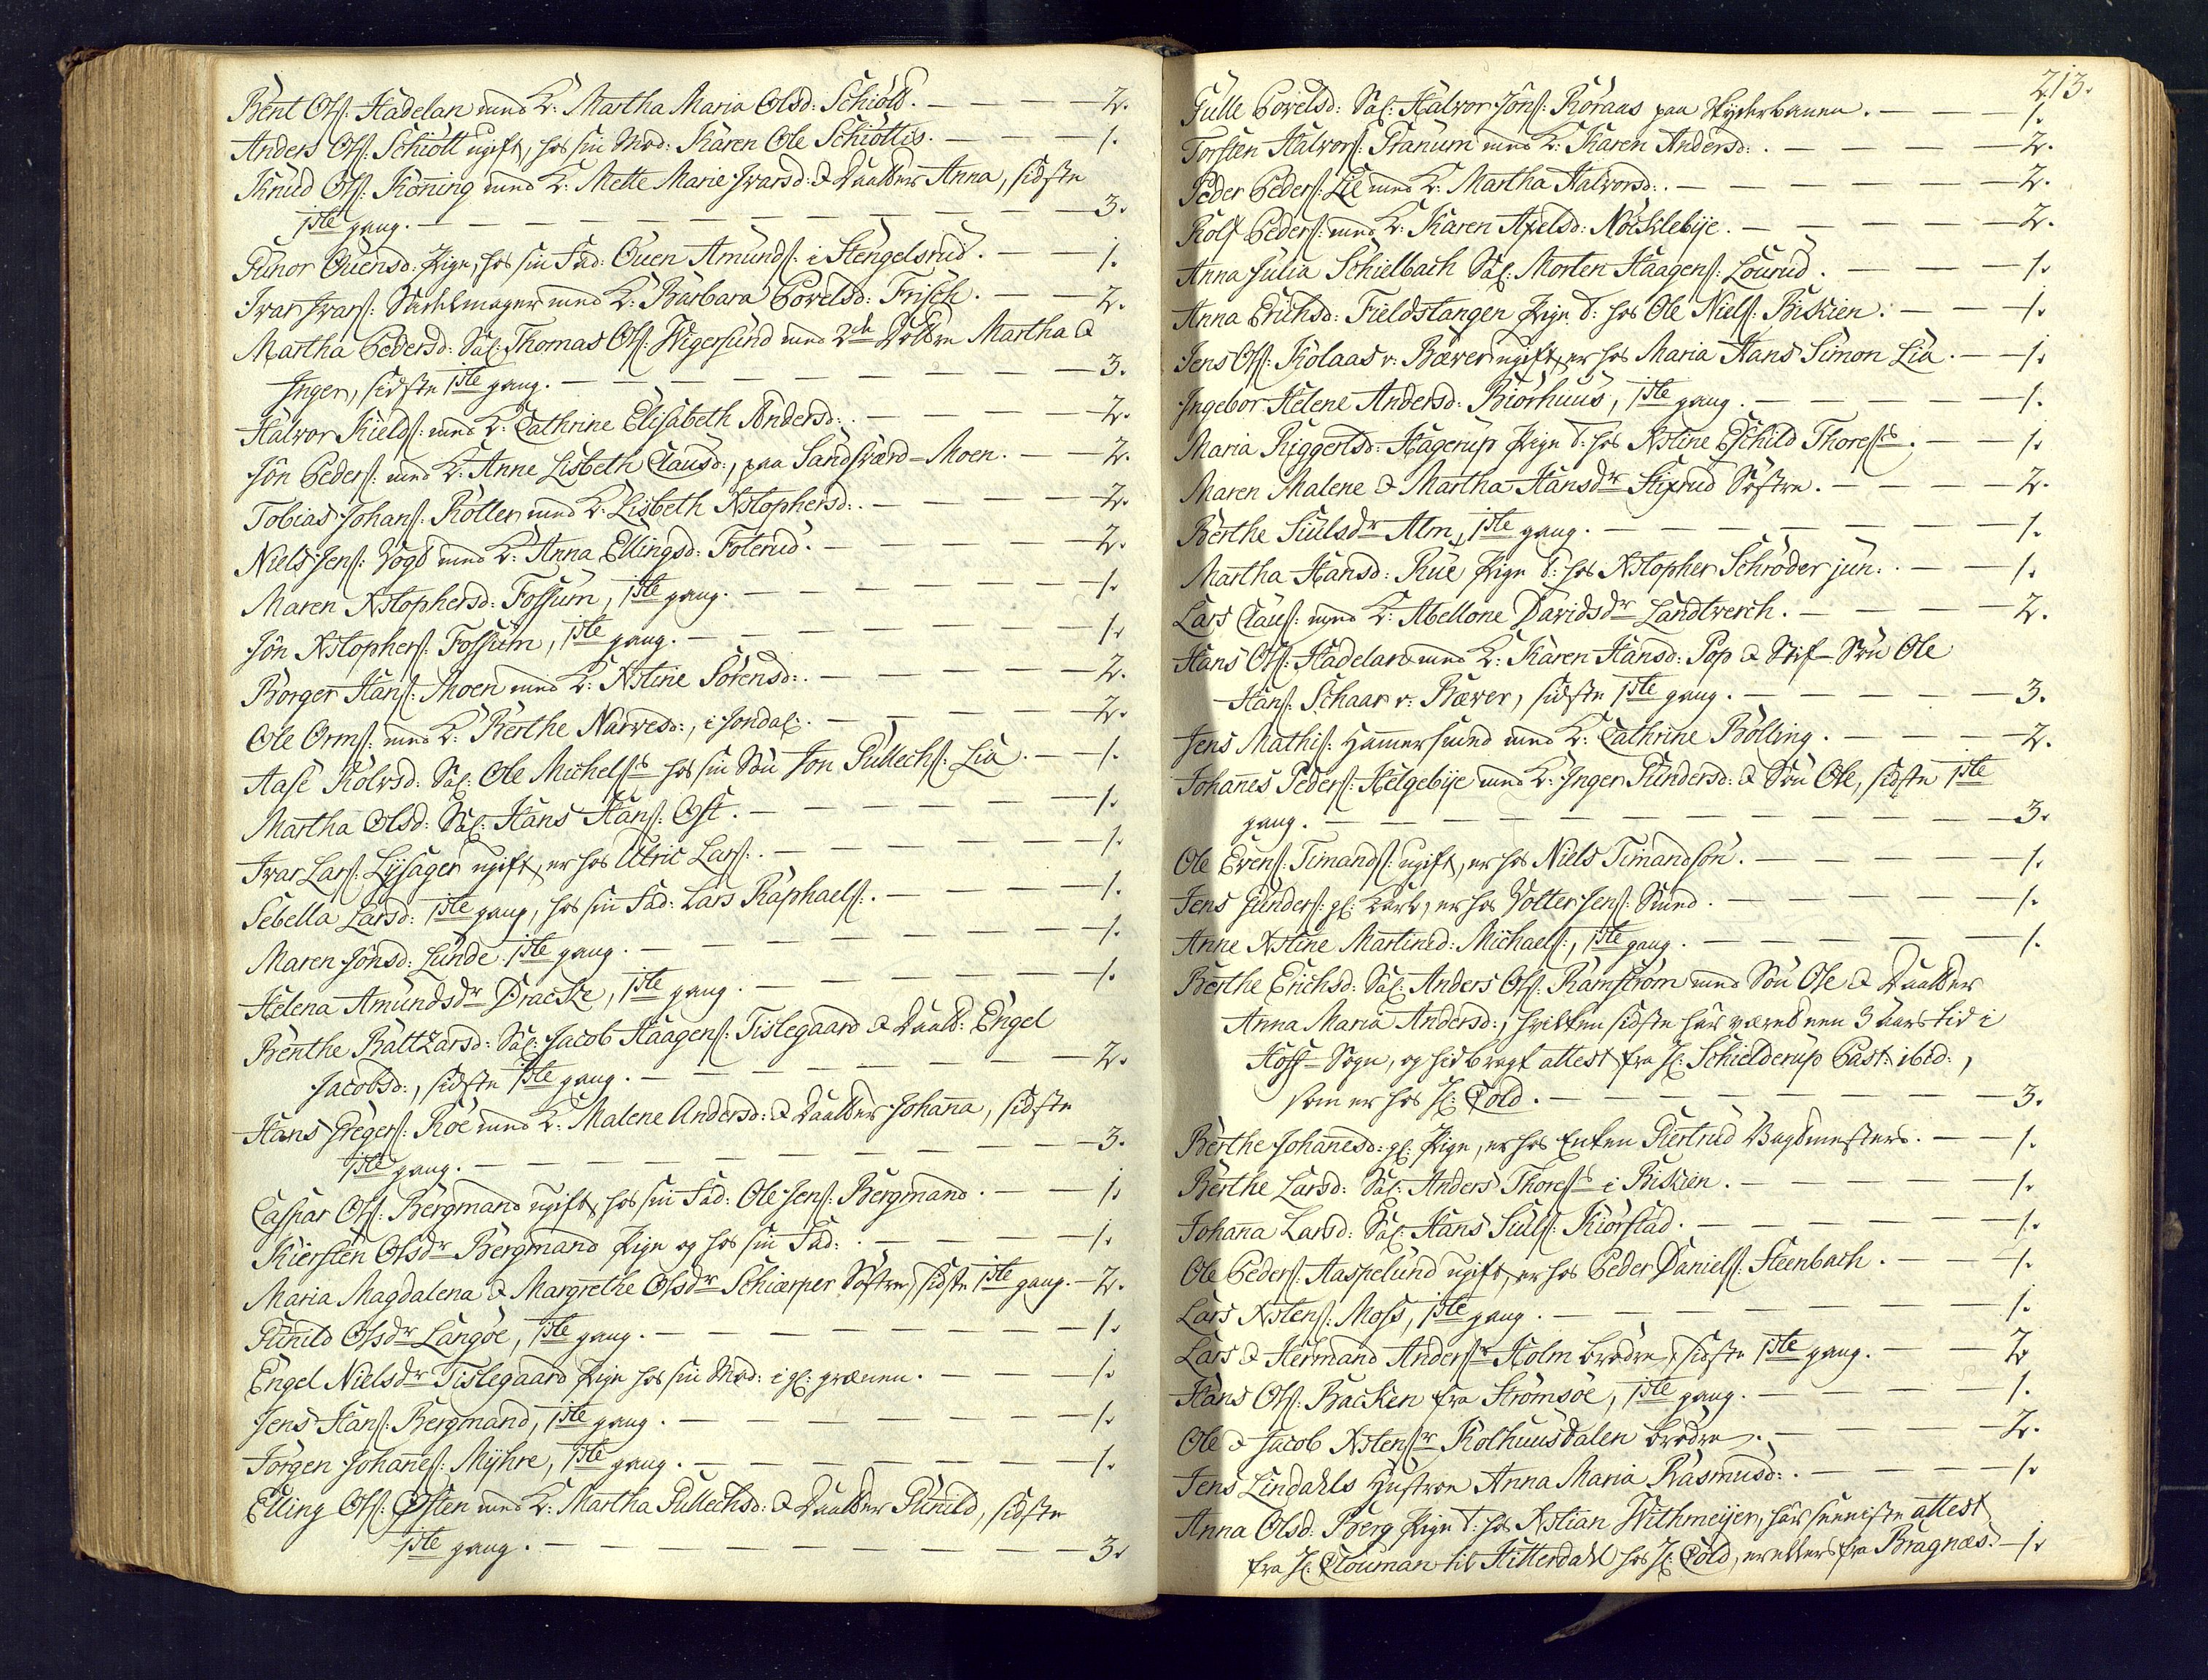 Bent Ols: Hadelan med K: Martha Maria Olsd: Schiöld. — — — — 2.
Anders Ols: Schiött ugift, hos sin Mod: Karen Ole Schiöttis. — — — 1.
Knud Ols: Köning med K: Mette Marie Ivarsd: & Daatter Anna, sidste
1ste gang. — — — — — — — — — — 3.
Gunor Ouensd: Pige, hos sin Fad: Ouen Amunds: i Stengelsrud. — — 1.
Ivar Ivars: Sadelmager med K: Barbara Povelsd: Frisch. — — 2.
Martha Pedersd: Sal: Thomas Ols: Wigersund med 2de Döttre Martha &
Inger, sidste 1ste gang. — — — — — — — — 3.
Halvor Kields: med K: Cathrine Elisabeth Andersd: — — — — 2.
Jön Peders: med K: Anne Lisbeth Clausd:, paa Sandsværd-Moen. — — 2.
Tobias Johans: Rotter med K: Lisbeth Xstophersd:. — — — — 2.
Niels Jens: Vogd med K: Anna Ellingsd: Foterud. — — — — 2.
Maren Xstophersd: Fossum, 1ste gang. — — — — — — 1.
Jön Xstophers: Fossum, 1ste gang. — — — — — — 1.
Borger Hans: Moen med K: Xstine Sörensd:. — — — — — 2.
Ole Orms: med K: Berthe Narvesd:, i Jondal:. — — — — 2.
Aase Rolvsd: Sal: Ole Michels: hos sin Sön Jon Gullechs: Lia. — 1.
Martha Olsd: Sal: Hans Hans: Ost. — — — — — — 1.
Ivar Lars: Lysager ugift, er hos Ulric Lars:. — — — — — 1.
Sebella Larsd: 1ste gang, hos sin Fad: Lars Raphaels:. — — — 1.
Maren Jönsd: Lunde 1ste gang. — — — — — — — 1.
Helena Amundsdr Dracke, 1ste gang. — — — — — — 1.
Benthe Baltzarsd: Sal: Jacob Haagens: Tislegaard & Daatt: Engel
Jacobsd:, sidste 1ste gang. — — — — — — — — 2.
Hans Gregers: Roe med K: Malene Andersd: & Daatter Johanna, sidste
1ste gang. — — — — — — — — — 3.
Caspar Ols: Bergmand ugift, hos sin Fad: Ole Jens: Bergmand. — — 1.
Kiersten Olsdr Bergmand Pige og hos sin Fad: — — — — — 1.
Maria Magdalena & Margrethe Olsdr Schiærper Söstre, sidste 1ste gang. — 2.
Gunild Olsdr Langöe, 1ste gang. — — — — — — — 1.
Engel Nielsdr Tislegaard Pige hos sin Mod: i gl: grænen. — — — 1.
Jens Hans: Bergmand, 1ste gang. — — — — — — 1.
Jörgen Johannes: Myhre, 1ste gang. — — — — — — 1.
Elling Ols: Östen med K: Martha Gullechsd: & Daatter Gunild, sidste
1ste gang. — — — — — — — — 3.
213.
Gulle Povelsd: Sal: Halvor Jöns: Röraas paa Skyderbanen. — — — 1.
Torsten Halvors: Granum med K: Karen Andersd:. — — — — 2.
Peder Peders: Lie med K: Martha Halvorsd:. — — — — — 2.
Rolf Peders: med K: Karen Axelsd: Nöcklebye. — — — — 2.
Anna Julia Schielbach Sal: Morten Haagens: Lourud. — — — 1.
Anna Erichsd: Fieldstangen Pige t: hos Ole Niels: Biskien. — — 1.
Jens Ols: Kolaas v: Bæver ugift, er hos Maria Hans Simon Lia. — 1.
Ingebor Helene Andersd: Biörhuus, 1ste gang. — — — — 1.
Maria Riggertsd: Hagerup Pige t: hos Xstine Eschild Thores:. — — 1.
Maren Malene & Martha Hansdr Stixrud Söstre. — — — — 2.
Berthe Siulsdr Alm, 1ste gang. — — — — — — 1.
Martha Hansd: Rue Pige t: hos Xstopher Schröder jun:. — — 1.
Lars Claus: med K: Abellone Davidsdr Landtverch. — — — 2.
Hans Ols: Hadeland med K: Karen Hansd: Pop & Stif-Sön Ole
Hans: Schaar v: Bæver, sidste 1ste gang. — — — — — 3.
Jens Mathis: Hamersund med K: Cathrine Bölling. — — — 2.
Johanes Peders: Helgebye med K: Inger Gundersd: & Sön Ole, sidste 1ste
gang. — — — — — — — — — 3.
Ole Evens: Timands: ugift, er hos Niels Timandsön. — — — — 1.
Jens Gunders: gl: Karl, er hos Volter Jens: Smed. — — — — 1.
Anne Xstine Martined: Michaels:, 1ste gang. — — — — — 1.
Berthe Erichsd: Sal: Anders Ols: Ramström med Sön Ole & Daatter
Anna Maria Andersd:, hvilken sidste har været een 3 Aars tid i
Hoff-Sogn, og hid bragt attest fra H: Schielderup Past: ibid:,
som er hos H: Told. — — — — — — — 3.
Berthe Johanesd: gl: Pige, er hos Enken Giertrud Bagemesters. — — 1.
Berthe Larsd: Sal: Anders Thores: i Biskien. — — — — 1.
Johana Larsd: Sal: Hans Siuls: Kiörstad. — — — — — 1.
Ole Peders: Haspelund ugift, er hos Peder Daniels: Steenbach. — — 1.
Lars Xstens: Moss, 1ste gang. — — — — — — — 1.
Lars & Hermand Andersr Holm brödre, sidste 1ste gang. — — 2.
Hans Ols: Backen fra Strömsöe, 1ste gang. — — — — — 1.
Ole & Jacob Xstensr Kolhuusdalen brödre. — — — — 2.
Jens Lindahls Hustroe Anna Maria Rasmusd:. — — — — 1.
Anna Olsd: Berg Pige t: hos Xstian Withmeijer, har seeniste attest
fra H: Clouman til Hitterdahl hos H: Told, er ellers fra Bragnæs. — 1.